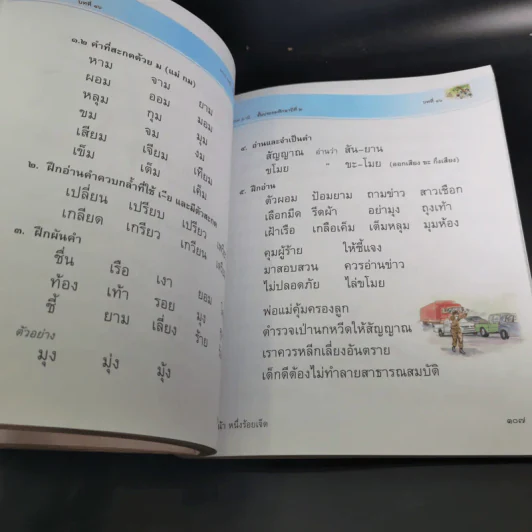 บทที่ ๑๖
๑.๒ คำที่สะกดด้วย ม (แม่ กม)
หาม จาม ยาม
ผอม ออม มอม
หลุม กุม มุม
ขม จม งม
เสียม เจียม เทียม
เข็ม เต็ม เค็ม
๒. ฝึกอ่านคำควบกล้ำที่ใช้ เ ีย และมีตัวสะกด
เปลี่ยน เปรียบ เปรียว
เกลียด เกรียว เกวียน
๓. ฝึกผันคำ
ชื่น เรือ เงา ยอม
ท้อง เท้า รอย มุง
ชี้ ยาม เลี่ยง ร้าย
ตัวอย่าง
มุง มุ่ง มุ้ง
ชั้นประถมศึกษาปีที่ ๑
บทที่ ๑๖
๔. อ่านและจำเป็นคำ
สัญญาณ อ่านว่า สัน-ยาน
ขโมย " ขะ-โมย (ออกเสียง ขะ กึ่งเสียง)
๕. ฝึกอ่าน
ตัวผอม ป้อมยาม ถามข่าว สาวเชือก
เลือกมีด รีดผ้า อย่ามุง ถุงเท้า
เฝ้าเรือ เกลือเค็ม เต็มหลุม มุมห้อง
คุมผู้ร้าย ให้ชี้แจง
มาสอบสวน ควรอ่านข่าว
ไม่ปลอดภัย ไล่ขโมย
พ่อแม่คุ้มครองลูก
ตำรวจเป่านกหวีดให้สัญญาณ
เราควรหลีกเลี่ยงอันตราย
เด็กดีต้องไม่ทำลายสาธารณสมบัติ
หนึ่งร้อยเจ็ด
๑๐๗